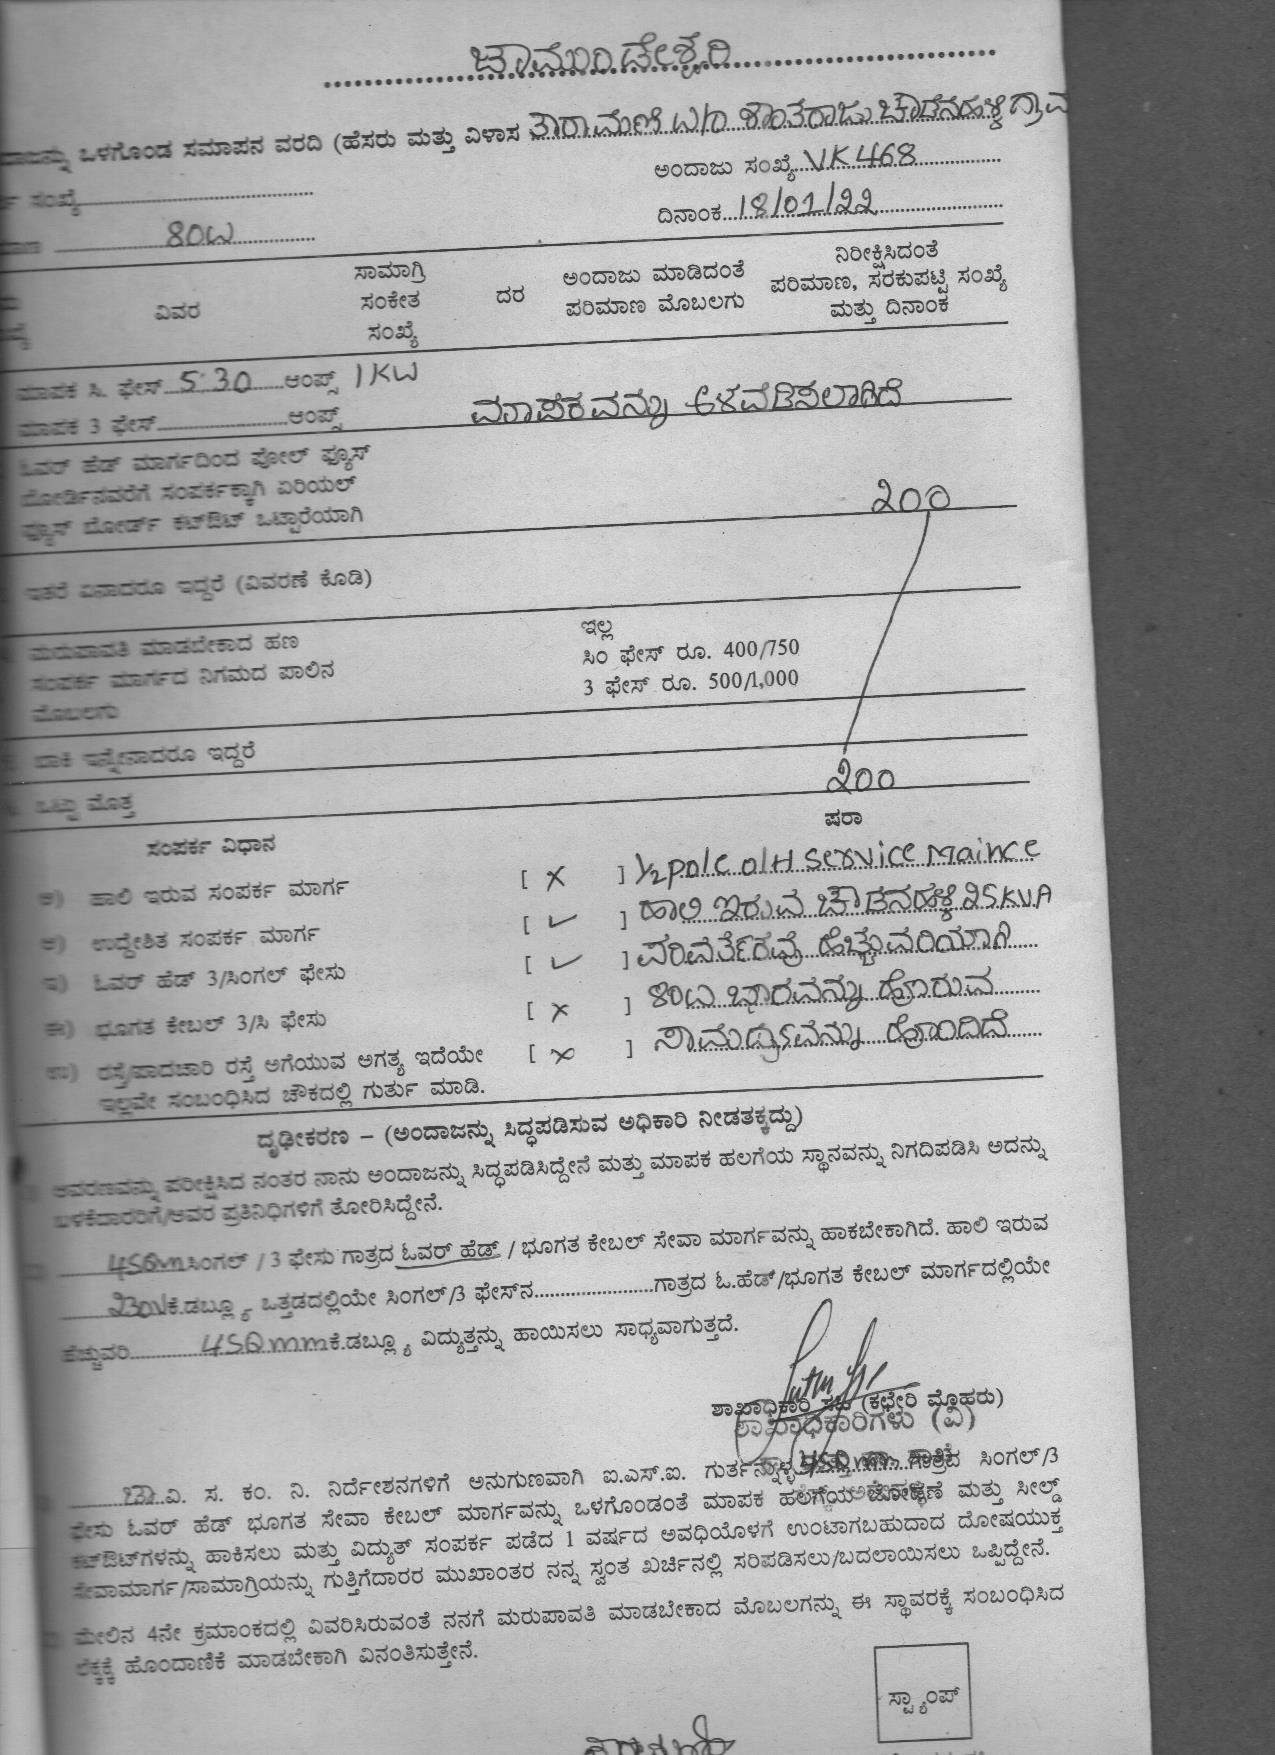 ಚಾಮುಂಡೇಶ್ವರಿ
ಒಳಗೊಂಡ ಸಮಾಪನ ವರದಿ (ಹೆಸರು ಮತ್ತು ವಿಳಾಸ ತಾರಾಮಣಿ W/o ಶಾಂತರಾಜು ಚೌಡೇನಹಳ್ಳಿ ಗ್ರಾಮ
ಸಂಖ್ಯೆ ಅಂದಾಜು ಸಂಖ್ಯೆ VK468
80W ದಿನಾಂಕ 18/01/22
ವಿವರ ಸಾಮಾಗ್ರಿ ಸಂಕೇತ ಸಂಖ್ಯೆ ದರ ಅಂದಾಜು ಮಾಡಿದಂತೆ ಪರಿಮಾಣ ಮೊಬಲಗು ನಿರೀಕ್ಷಿಸಿದಂತೆ ಪರಿಮಾಣ, ಸರಕುಪಟ್ಟಿ ಸಂಖ್ಯೆ ಮತ್ತು ದಿನಾಂಕ
ಮಾಪಕ ಸಿ. ಫೇಸ್ 5 30 ಆಂಪ್ಸ್ 1KW
ಮಾಪಕ 3 ಫೇಸ್ ಆಂಪ್ಸ್ ಮಾಪಕವನ್ನು ಅಳವಡಿಸಲಾಗಿದೆ
ಓವರ್ ಹೆಡ್ ಮಾರ್ಗದಿಂದ ಪೋಲ್ ಫ್ಯೂಸ್
ಬೋರ್ಡಿನವರೆಗೆ ಸಂಪರ್ಕಕ್ಕಾಗಿ ಏರಿಯಲ್
ಫ್ಯೂಸ್ ಬೋರ್ಡ್ ಕಟ್ಔಟ್ ಒಟ್ಟಾರೆಯಾಗಿ ೨೦೦
ಇತರೆ ಏನಾದರೂ ಇದ್ದರೆ (ವಿವರಣೆ ಕೊಡಿ)
ಮರುಪಾವತಿ ಮಾಡಬೇಕಾದ ಹಣ ಇಲ್ಲ
ಸಂಪರ್ಕ ಮಾರ್ಗದ ನಿಗಮದ ಪಾಲಿನ ಸಿಂ ಫೇಸ್ ರೂ. 400/750
ಮೊಬಲಗು 3 ಫೇಸ್ ರೂ. 500/1,000
ಬಾಕಿ ಇನ್ನೇನಾದರೂ ಇದ್ದರೆ
ಒಟ್ಟು ಮೊತ್ತ ೨೦೦
ಸಂಪರ್ಕ ವಿಧಾನ ಷರಾ
ಅ) ಹಾಲಿ ಇರುವ ಸಂಪರ್ಕ ಮಾರ್ಗ [ × ] 1/2 pole o/H service Maince
ಆ) ಉದ್ದೇಶಿತ ಸಂಪರ್ಕ ಮಾರ್ಗ [ ✓ ] ಹಾಲಿ ಇರುವ ಚೌಡೇನಹಳ್ಳಿ 25KVA
ಇ) ಓವರ್ ಹೆಡ್ 3/ಸಿಂಗಲ್ ಫೇಸು [ ✓ ] ಪರಿವರ್ತಕವು ಹೆಚ್ಚುವರಿಯಾಗಿ
ಈ) ಭೂಗತ ಕೇಬಲ್ 3/ಸಿ ಫೇಸು [ × ] 80W ಭಾರವನ್ನು ಹೊರುವ
ಉ) ರಸ್ತೆ/ಪಾದಚಾರಿ ರಸ್ತೆ ಅಗೆಯುವ ಅಗತ್ಯ ಇದೆಯೇ [ × ] ಸಾಮರ್ಥ್ಯವನ್ನು ಹೊಂದಿದೆ
ಇಲ್ಲವೇ ಸಂಬಂಧಿಸಿದ ಚೌಕದಲ್ಲಿ ಗುರ್ತು ಮಾಡಿ.
ದೃಢೀಕರಣ – (ಅಂದಾಜನ್ನು ಸಿದ್ಧಪಡಿಸುವ ಅಧಿಕಾರಿ ನೀಡತಕ್ಕದ್ದು)
ಆವರಣವನ್ನು ಪರೀಕ್ಷಿಸಿದ ನಂತರ ನಾನು ಅಂದಾಜನ್ನು ಸಿದ್ಧಪಡಿಸಿದ್ದೇನೆ ಮತ್ತು ಮಾಪಕ ಹಲಗೆಯ ಸ್ಥಾನವನ್ನು ನಿಗದಿಪಡಿಸಿ ಅದನ್ನು
ಬಳಕೆದಾರರಿಗೆ/ಅವರ ಪ್ರತಿನಿಧಿಗಳಿಗೆ ತೋರಿಸಿದ್ದೇನೆ.
450m ಸಿಂಗಲ್ / 3 ಫೇಸು ಗಾತ್ರದ ಓವರ್ ಹೆಡ್ / ಭೂಗತ ಕೇಬಲ್ ಸೇವಾ ಮಾರ್ಗವನ್ನು ಹಾಕಬೇಕಾಗಿದೆ. ಹಾಲಿ ಇರುವ
230V ಕೆ.ಡಬ್ಲ್ಯೂ ಒತ್ತಡದಲ್ಲಿಯೇ ಸಿಂಗಲ್/3 ಫೇಸ್‌ನ ಗಾತ್ರದ ಓ.ಹೆಡ್/ಭೂಗತ ಕೇಬಲ್ ಮಾರ್ಗದಲ್ಲಿಯೇ
ಹೆಚ್ಚುವರಿ 450mm ಕೆ.ಡಬ್ಲ್ಯೂ ವಿದ್ಯುತ್ತನ್ನು ಹಾಯಿಸಲು ಸಾಧ್ಯವಾಗುತ್ತದೆ.
ಶಾಖಾಧಿಕಾರಿ ಸಹಿ (ಕಛೇರಿ ಮೊಹರು)
ಶಾಖಾಧಿಕಾರಿಗಳು (ವಿ)
ಚಾ.ವಿ. ಸ. ಕಂ. ನಿ. ನಿರ್ದೇಶನಗಳಿಗೆ ಅನುಗುಣವಾಗಿ ಐ.ಎಸ್.ಐ. ಗುರ್ತನ್ನುಳ್ಳ 450mm ಗಾತ್ರದ ಸಿಂಗಲ್/3
ಫೇಸು ಓವರ್ ಹೆಡ್ ಭೂಗತ ಸೇವಾ ಕೇಬಲ್ ಮಾರ್ಗವನ್ನು ಒಳಗೊಂಡಂತೆ ಮಾಪಕ ಹಲಗೆಯ ಜೋಡಣೆ ಮತ್ತು ಸೀಲ್ಡ್
ಕಟ್‌ಔಟ್‌ಗಳನ್ನು ಹಾಕಿಸಲು ಮತ್ತು ವಿದ್ಯುತ್ ಸಂಪರ್ಕ ಪಡೆದ 1 ವರ್ಷದ ಅವಧಿಯೊಳಗೆ ಉಂಟಾಗಬಹುದಾದ ದೋಷಯುಕ್ತ
ಸೇವಾಮಾರ್ಗ/ಸಾಮಾಗ್ರಿಯನ್ನು ಗುತ್ತಿಗೆದಾರರ ಮುಖಾಂತರ ನನ್ನ ಸ್ವಂತ ಖರ್ಚಿನಲ್ಲಿ ಸರಿಪಡಿಸಲು/ಬದಲಾಯಿಸಲು ಒಪ್ಪಿದ್ದೇನೆ.
ಮೇಲಿನ 4ನೇ ಕ್ರಮಾಂಕದಲ್ಲಿ ವಿವರಿಸಿರುವಂತೆ ನನಗೆ ಮರುಪಾವತಿ ಮಾಡಬೇಕಾದ ಮೊಬಲಗನ್ನು ಈ ಸ್ಥಾವರಕ್ಕೆ ಸಂಬಂಧಿಸಿದ
ಲೆಕ್ಕಕ್ಕೆ ಹೊಂದಾಣಿಕೆ ಮಾಡಬೇಕಾಗಿ ವಿನಂತಿಸುತ್ತೇನೆ.
ಸ್ಟ್ಯಾಂಪ್